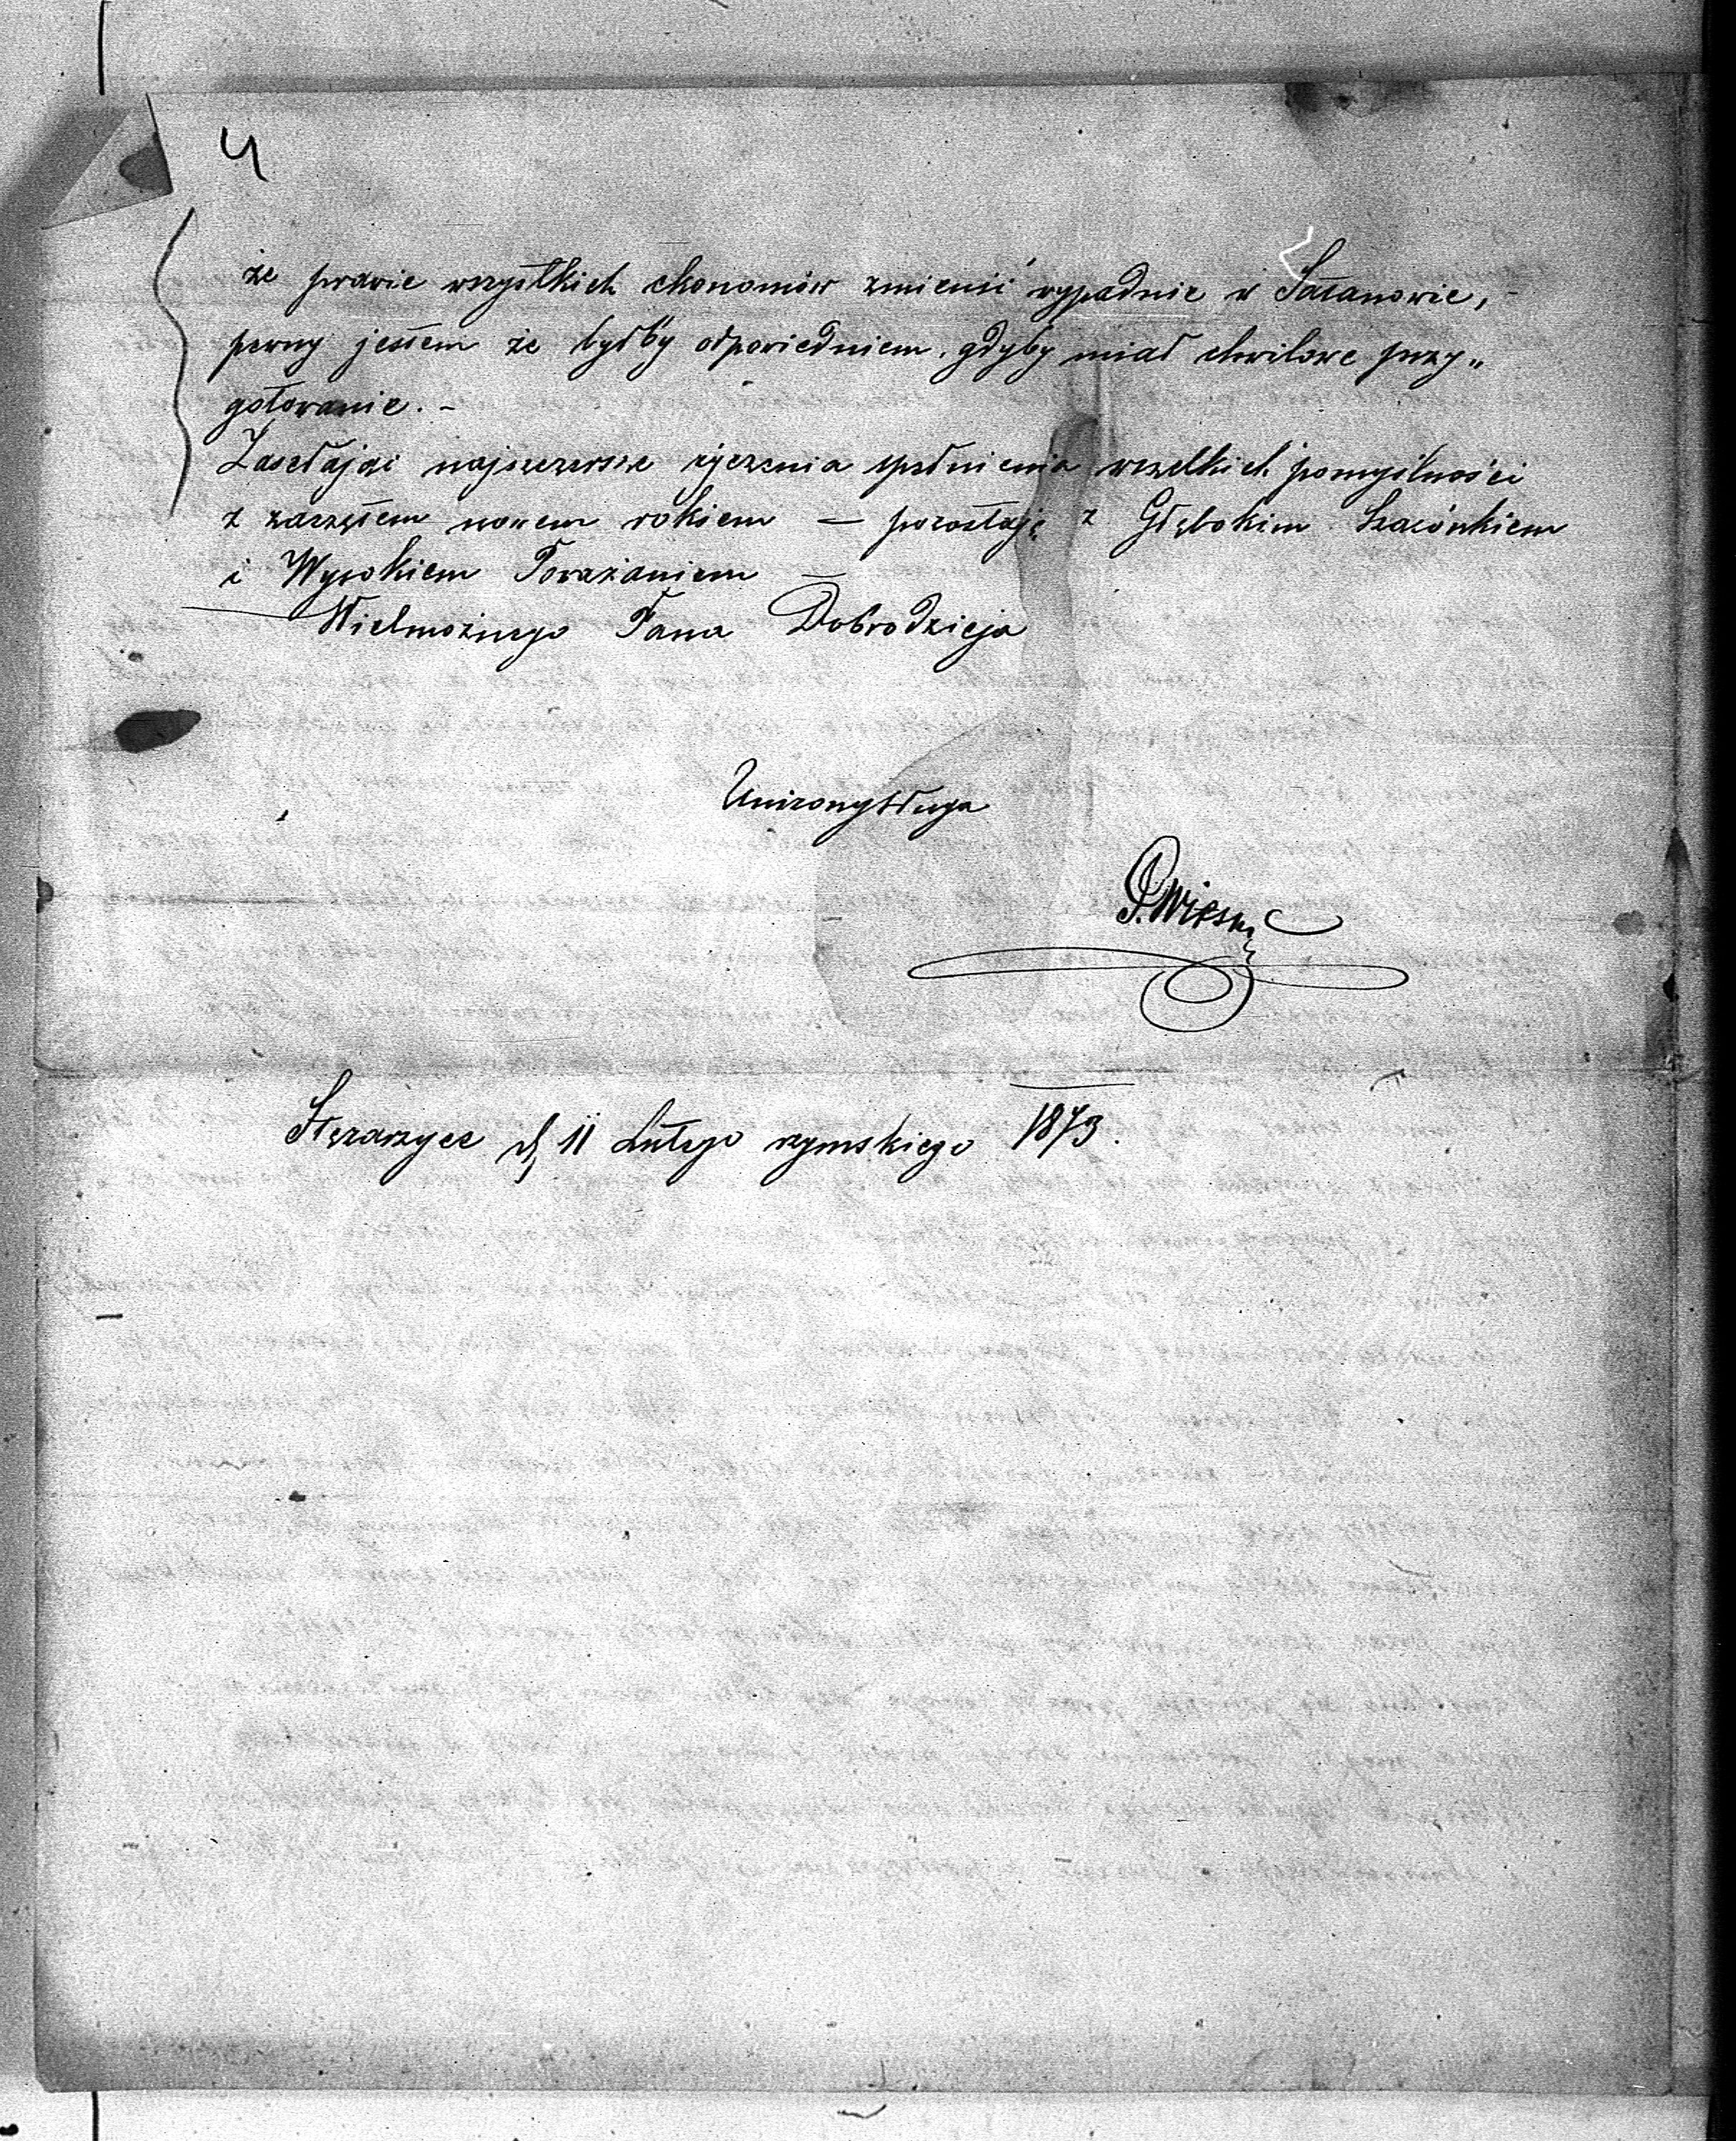 4
że prawie wszystkich ekonomów zmienić wypadnie w Satanowie, -
pewny jestem że byłby odpowiedniem, gdyby miał chwilowe przy„
gotowanie. -
Zasełając najszczersze życzenia spełnienia wszelkich pomyślności
z zaczętem nowem rokiem — pozostaję z Głębokim Szacónkiem
i Wysokiem Poważaniem —
Wielmożnego Pana Dobrodzieja
Uniżony sługa
Stęzarzyce d, 11 Lutego rzymskiego 1873.